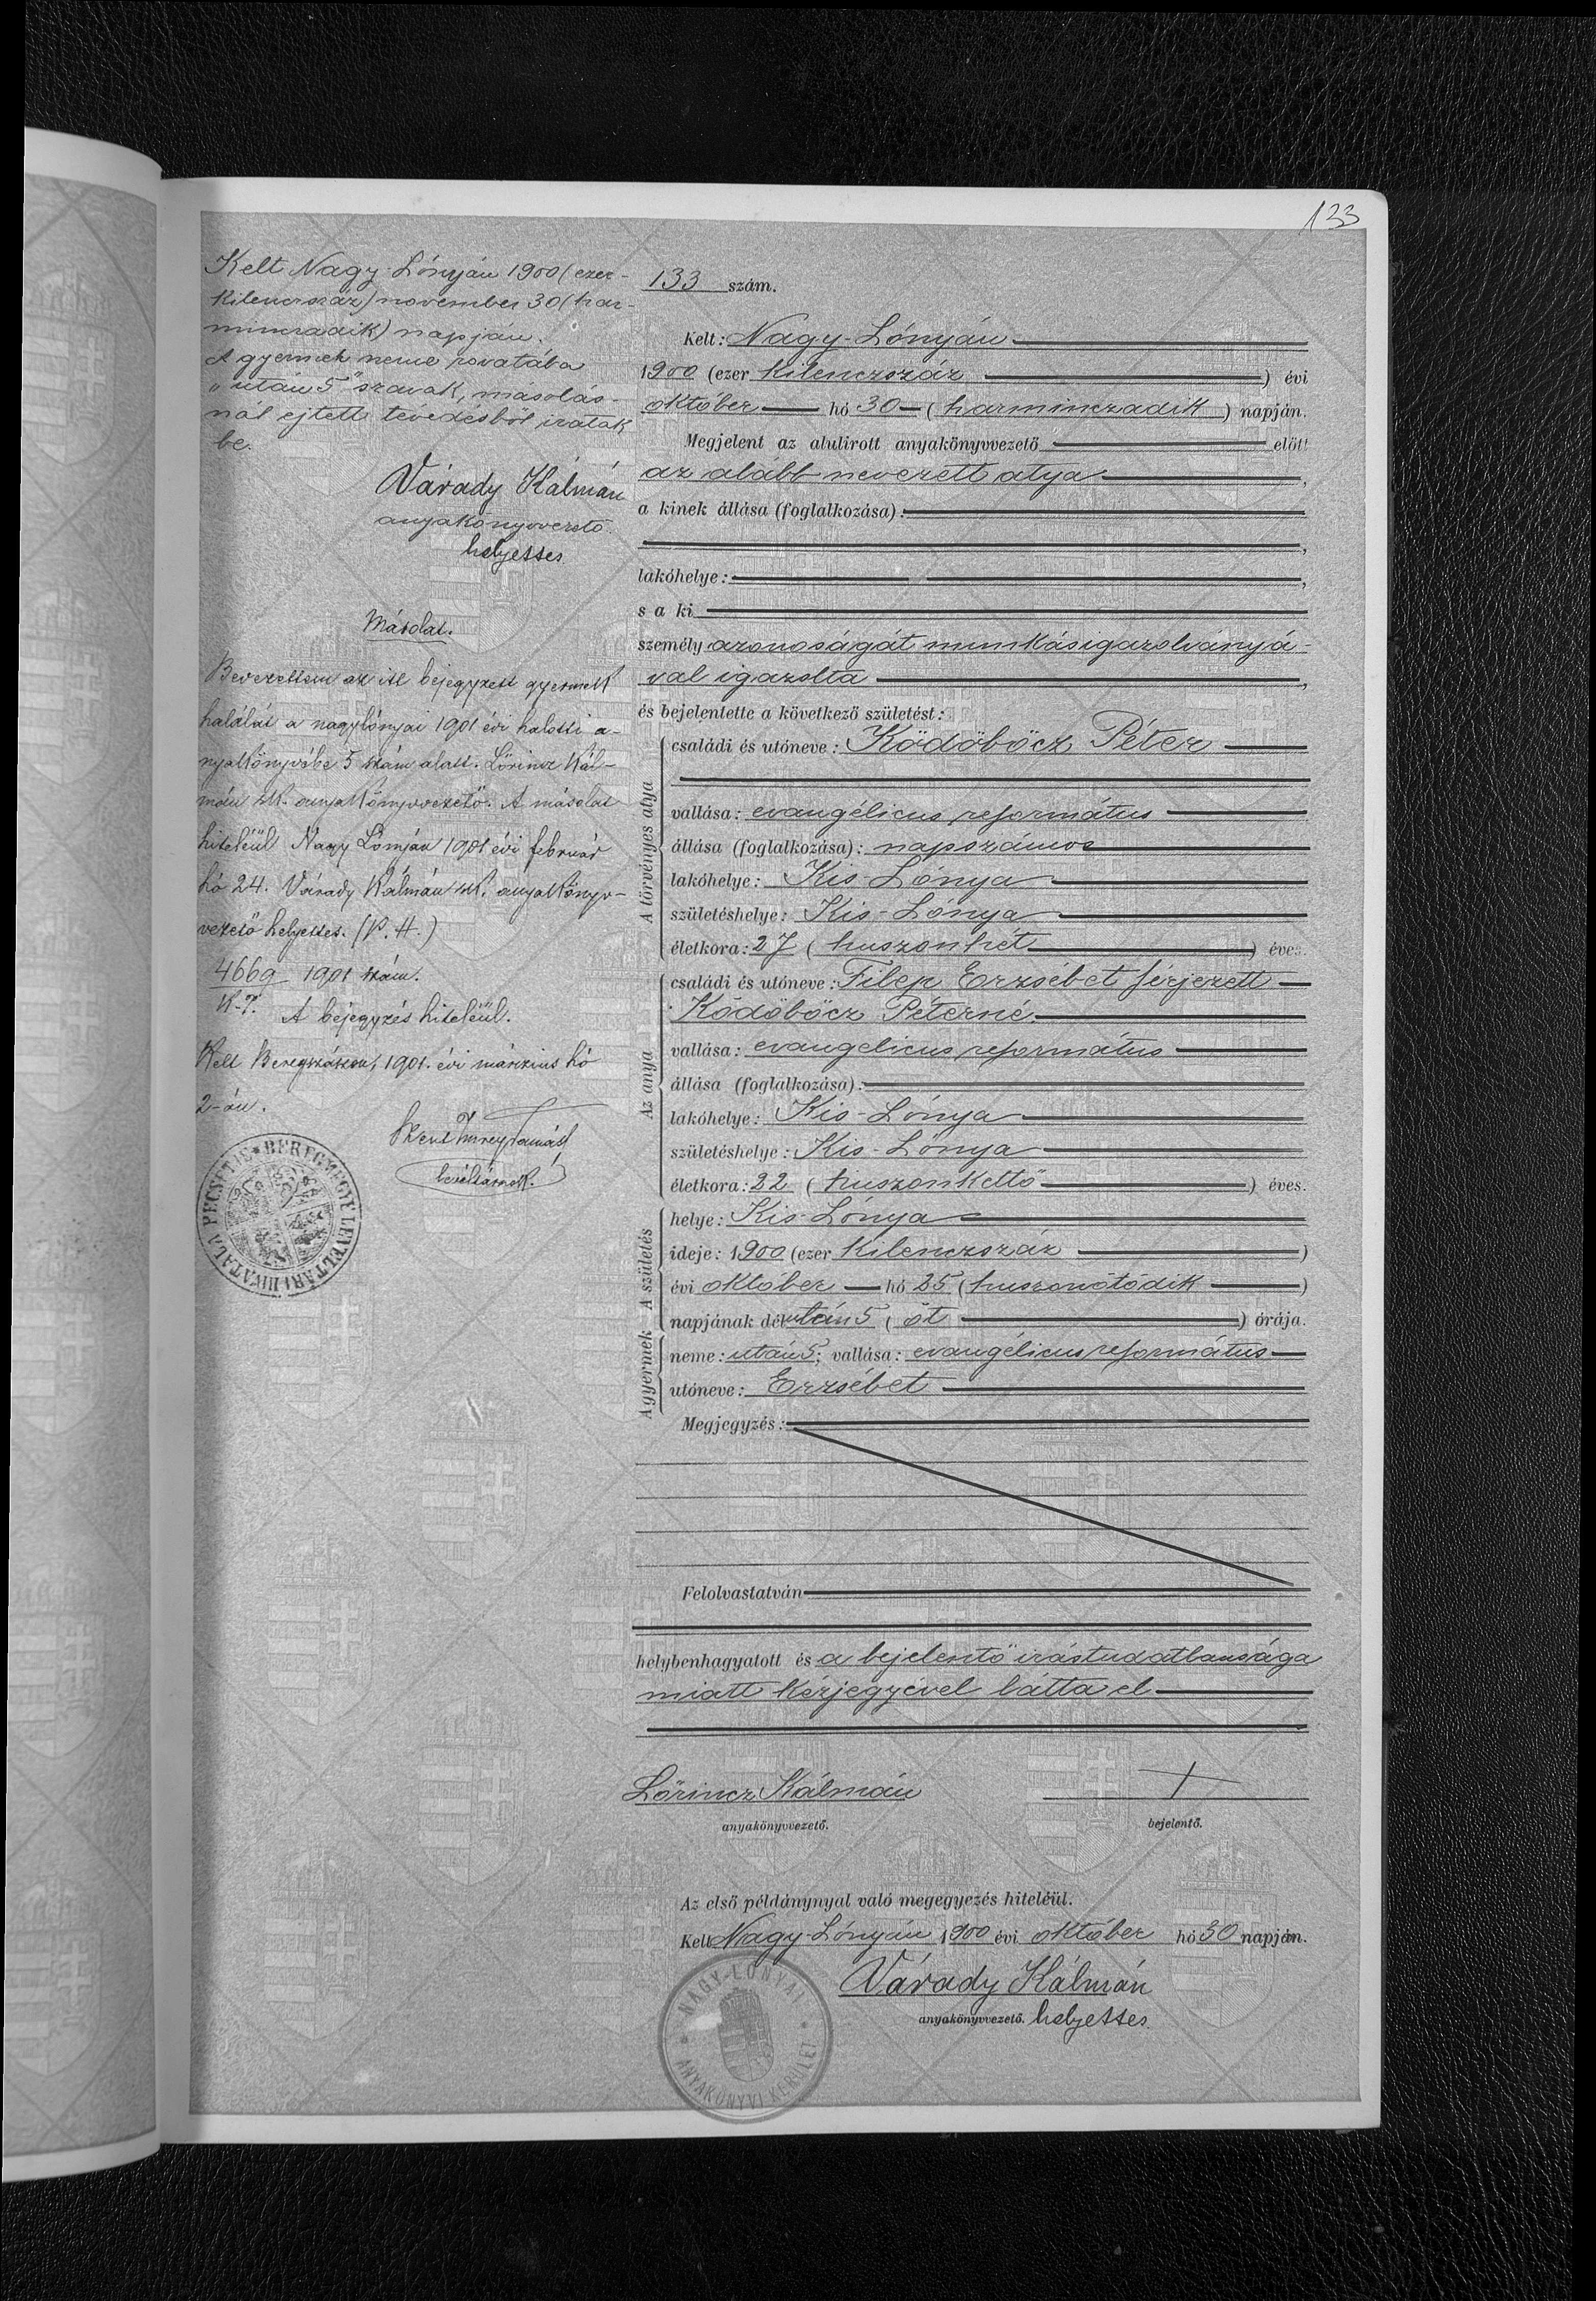 133
Kelt Nagy-Lónyán 1900 (ezer-
kilenczszáz) november 30 (har-
minczadik) napján.
A gyermek neme rovatába
"után 5" szavak, másolás-
nál ejtett tévedésből irattak
be.
Várady Kálmán
anyakönyvvezető
helyettes
Másolat.
Bevezettem az itt bejegyzett gyermek
halálát a nagylónyai 1901 évi halotti a-
nyakönyvébe 5 szám alatt. Lőrincz Kál-
mán sk. anyakönyvvezető. A másolat
hiteléül Nagy Lónyán 1901 évi február
hó 24. Várady Kálmán sk. anyakönyv-
vezető helyettes. (P. H.)
4669 1901 szám.
K. I.
A bejegyzés hiteléül.
Kelt Beregszászon, 1901. évi márczius hó
2-án.
Tamás
levéltárnok.
BEREGMEGYE LEVÉLTÁRI HIVATALA PECSÉTJE
133 szám.
Kelt: Nagy-Lónyán
1900 (ezer kilenczszáz) évi
október hó 30 (harminczadik) napján.
Megjelent az alulirott anyakönyvvezető előtt
az alább nevezett atya,
a kinek állása (foglalkozása):
,
lakóhelye: ,
s a ki
személy azonoságát munkásigazolványá-
val igazolta,
és bejelentette a következő születést:
A törvényes atya
családi és utóneve: Ködöböcz Péter
vallása: evangélicus református
állása (foglalkozása): napszámos
lakóhelye: Kis-Lónya
születéshelye: Kis-Lónya
életkora: 27 (huszonhét) éves.
Az anya
családi és utóneve: Filep Erzsébet férjezett
Ködöböcz Péterné
vallása: evangelicus református
állása (foglalkozása):
lakóhelye: Kis-Lónya
születéshelye: Kis-Lónya
életkora: 22 (huszonkettő) éves.
A születés
helye: Kis-Lónya
ideje: 1900 (ezer kilenczszáz)
évi október hó 25 (huszonötödik)
napjának délután 5 (öt) órája.
A gyermek
neme: után 5; vallása: evangélicus református
utóneve: Erzsébet
Megjegyzés:
Felolvastatván
helybenhagyatott és a bejelentő irástudatlansága
miatt kézjegyével látta el
Lőrincz Kálmán
+
anyakönyvvezető.
bejelentő.
Az első példánynyal való megegyezés hiteléül.
Kelt Nagy-Lónyán 1900 évi október hó 30 napján.
Várady Kálmán
anyakönyvvezető. helyettes
NAGY-LÓNYAI ANYAKÖNYVI KERÜLET